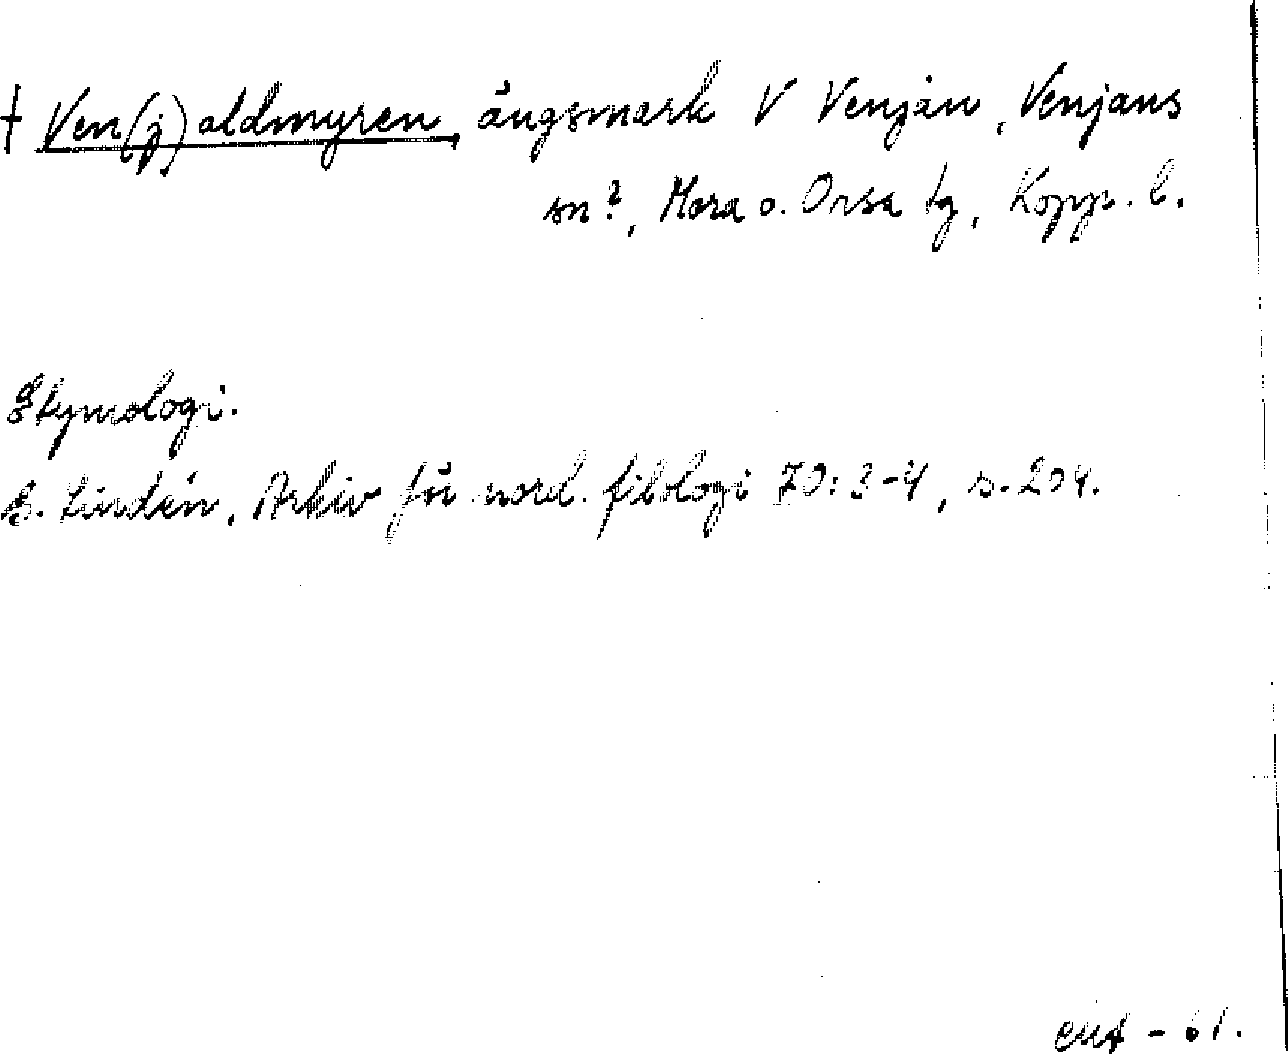 † Ven(j)aldmyren, ängsmark V Venjan, Venjans
sn?, Mora o. Orsa tg, Kopp. l.
Etymologi.
B. Lindén, Arkiv för nord. filologi 70: 3-4, s. 204.
-61.